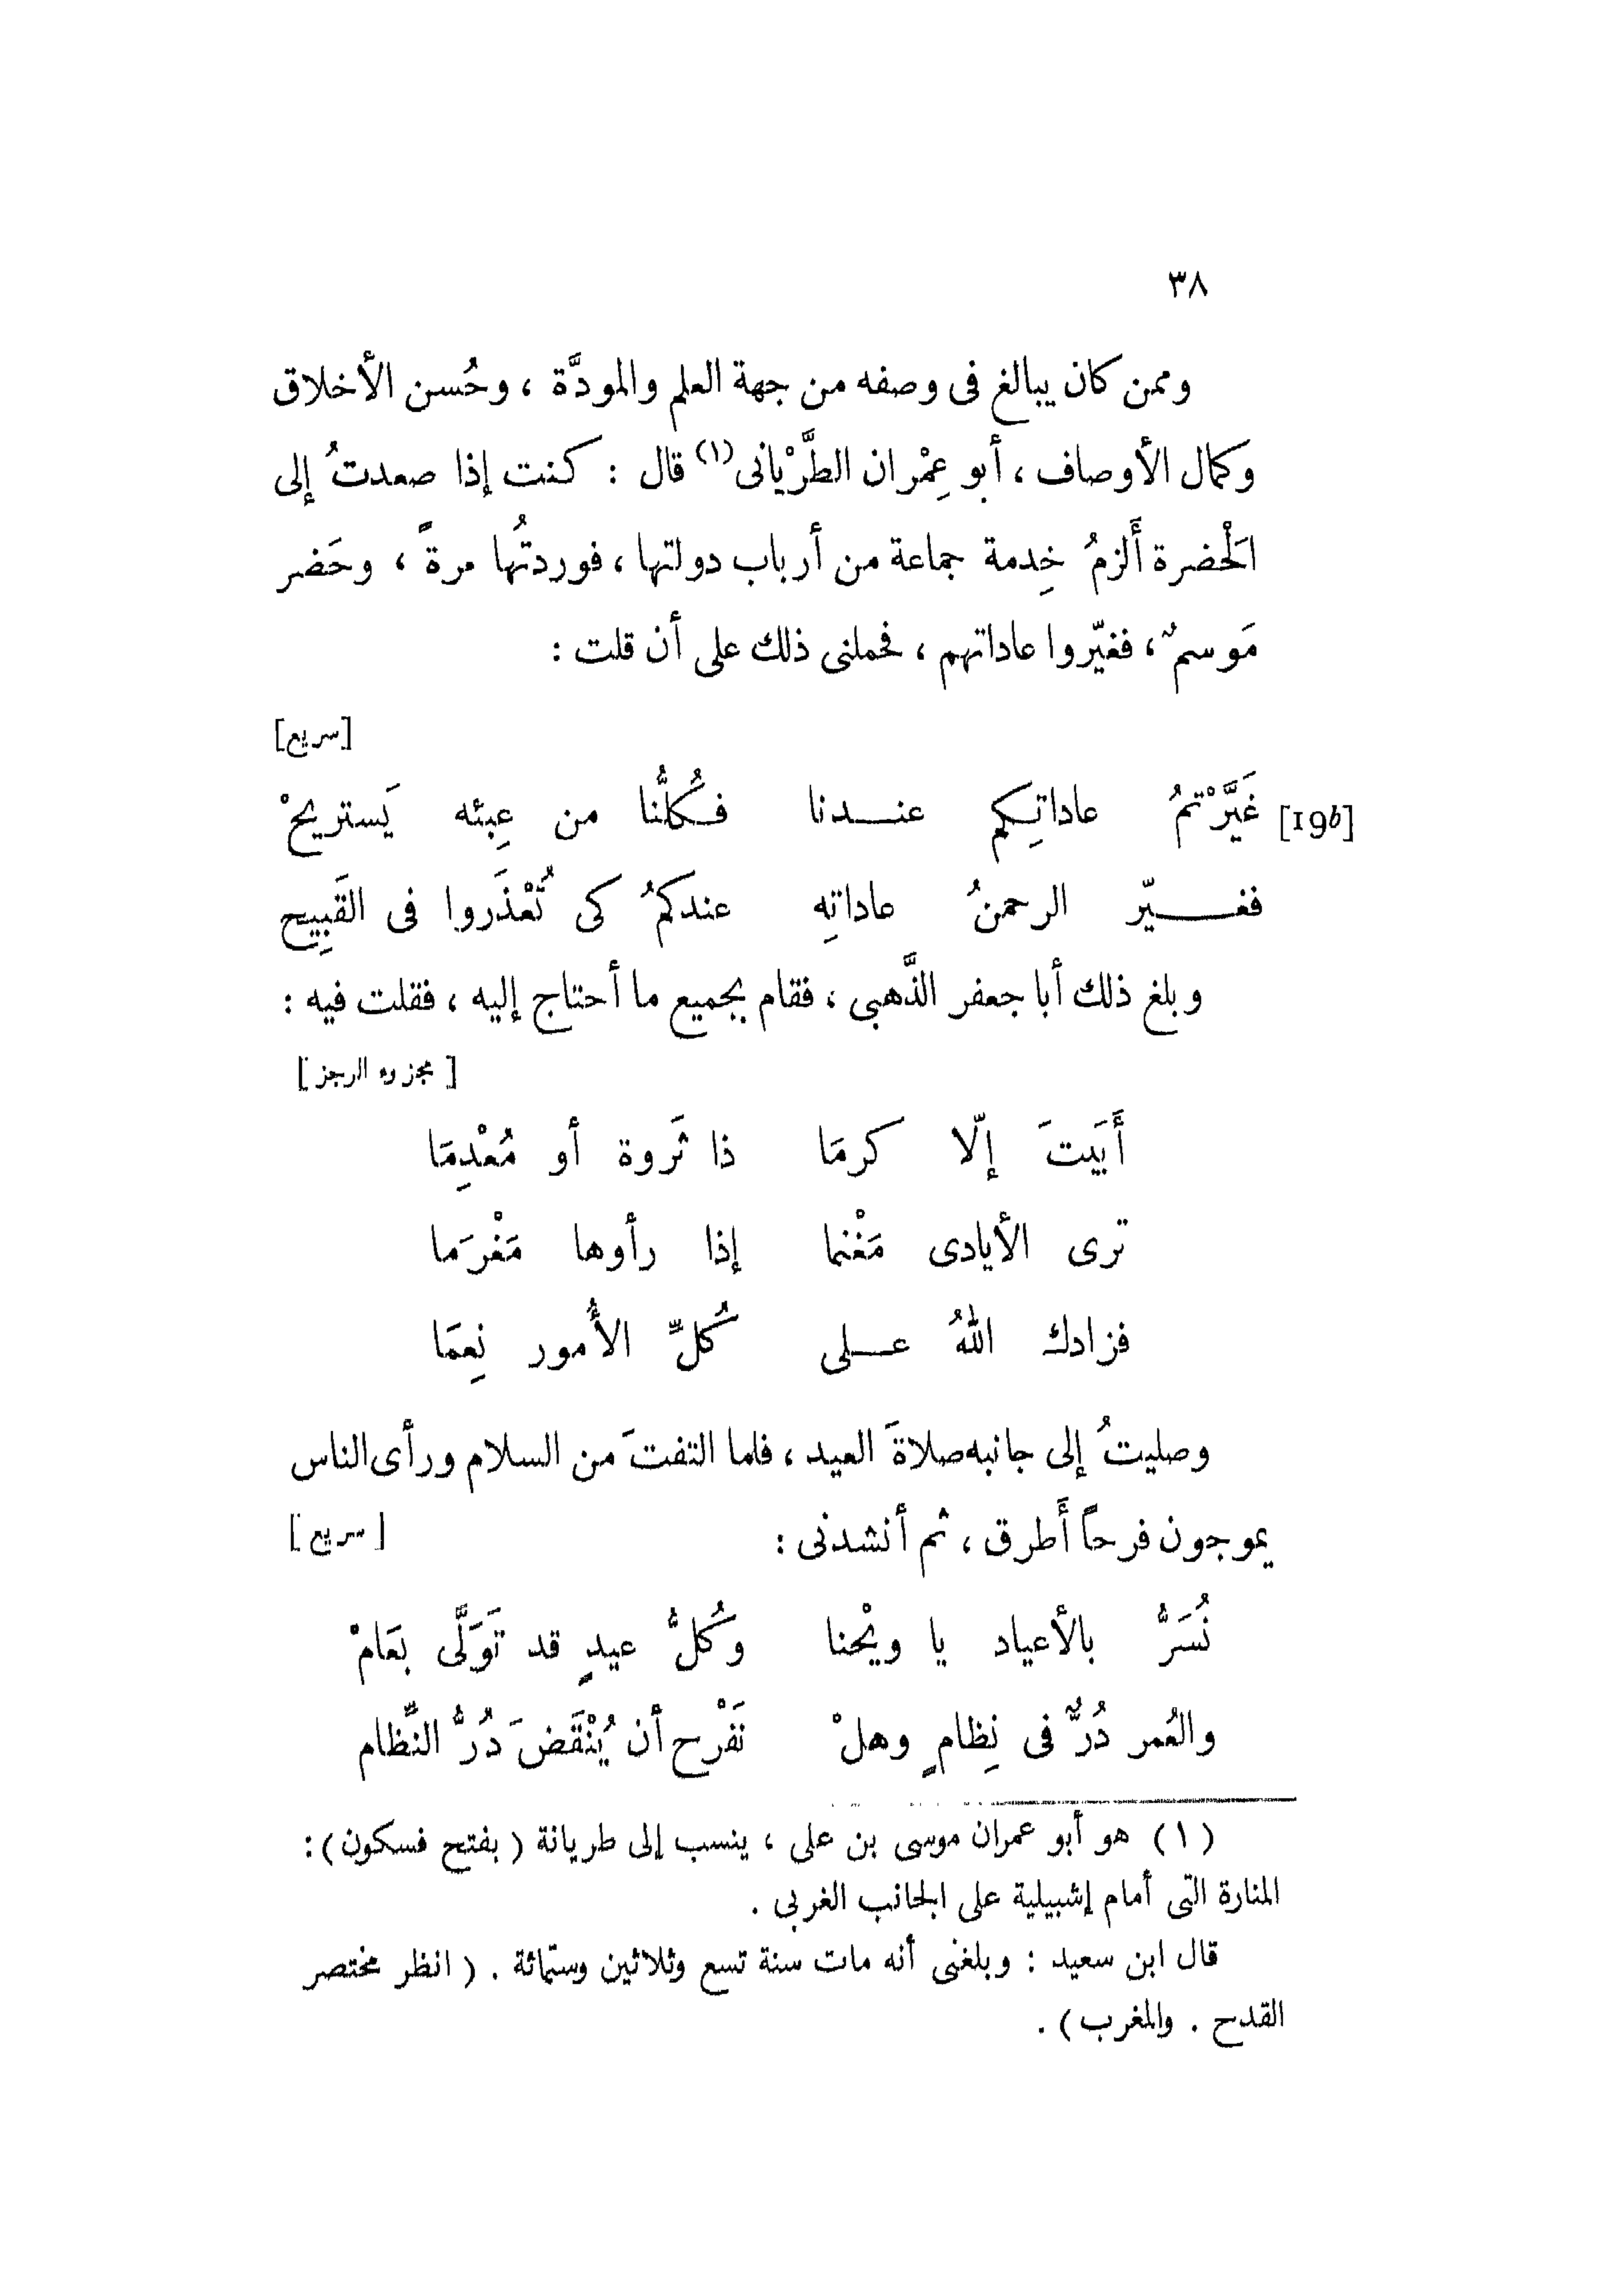 ٣٨
وممن كان يبالغ فى وصفه من جهة العلم والمودَّة ، وحُسن الأخلاق
وكمال الأوصاف ، أبو عِمْران الطَّرْيانى(١) قال : كنت إذا صعدتُ إلى
الَحْضرة أَلزمُ خِدمة جماعة من أرباب دولتها ، فوردتُها مرةً ، وحَضر
مَوسمٌ ، فغيّروا عاداتهم ، فحملنى ذلك على أن قلت :
[سريع]
غَيَّرْتمُ عاداتِكم عنــدنا فكُلُّنا من عِبئه يَستريحْ [19b]
فغــيّر الرحمنُ عاداتِه عندكمُ كى تُعْذَروا فى القَبِيح
وبلغ ذلك أبا جعفر الذَّهبى ، فقام بجميع ما أحتاج إليه ، فقلت فيه :
[ مجزوء الرجز ]
أَبَيتَ إلّا كرمَا ذا ثَروة أو مُعْدِمَا
ترى الأيادى مَغْنما إذا رأوها مَغْرَما
فزادك اللهُ عــلى كُلِّ الأُمور نِعمَا
وصليتُ إلى جانبه صلاةَ العيد ، فلما التفتَ من السلام ورأى الناس
يموجون فرحاً أَطرق ، ثم أنشدنى : [ سريع ]
نُسَرُّ بالأعياد يا ويْحنا وكُلُّ عيدٍ قد تَوَلَّى بعَامْ
والعُمر دُرٌّ فى نِظامٍ وهلْ نَفْرح أن يُنْقَضَ دُرُّ النِّظام
(١) هو أبو عمران موسى بن على ، ينسب إلى طريانة ( بفتح فسكون ) :
المنارة التى أمام إشبيلية على الجانب الغربى .
قال ابن سعيد : وبلغنى أنه مات سنة تسع وثلاثين وستمائة . ( انظر مختصر
القدح . والمغرب ) .